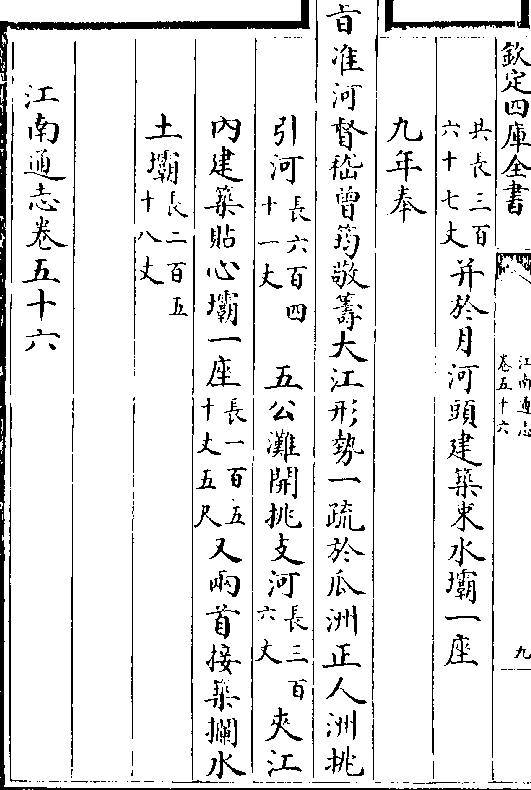 欽定四庫全書
江南通志
卷五十六
九
共長三百六十七丈并於月河頭建築東水壩一座
九年奉
旨准河督嵇曾筠敬籌大江形勢一疏於瓜洲正人洲挑
引河長六百四十一丈五公灘開挑支河長三百六丈夾江
內建築貼心壩一座長一百五十丈五尺又兩首接築攔水
土壩長二百五十八丈
江南通志卷五十六